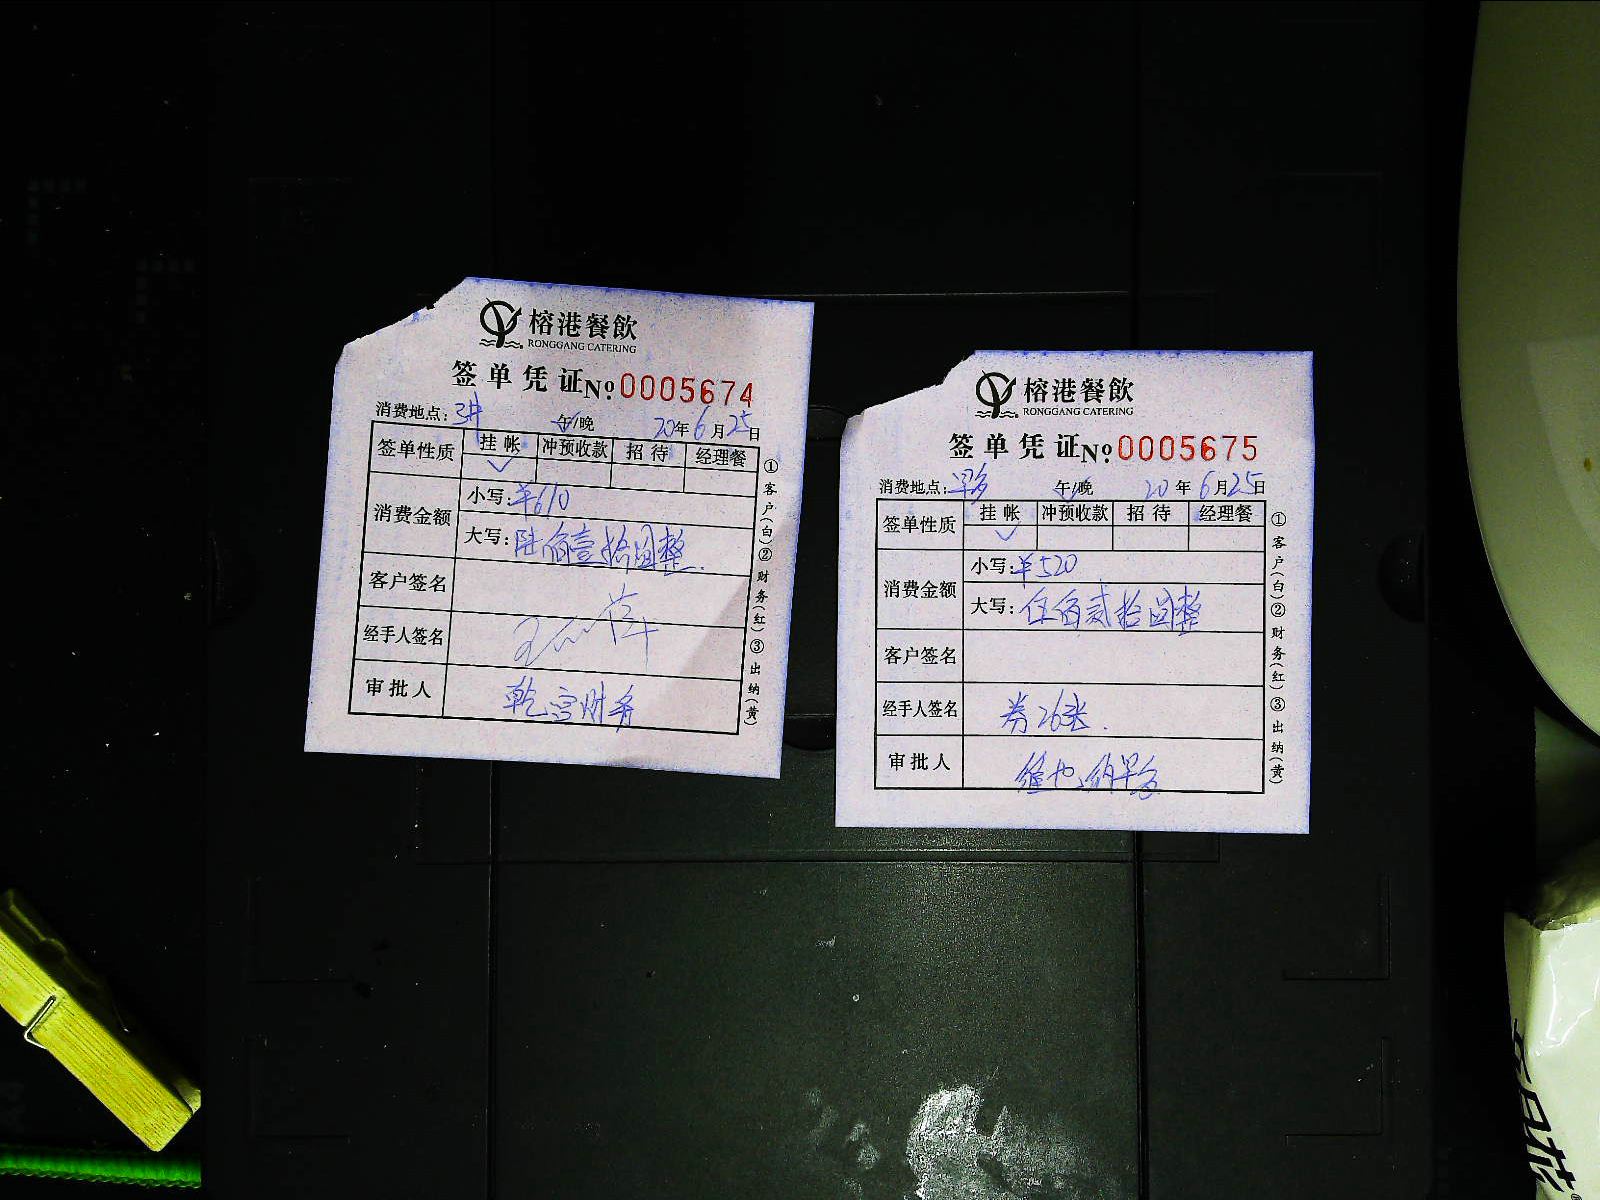 榕港餐飲
RONGGANG CATERING
签单凭证 № 0005674
消费地点: 3# 午/晚 20年6月25日
签单性质 挂帐 冲预收款 招待 经理餐
✓
消费金额 小写: ¥610
大写: 陆佰壹拾圆整.
客户签名
经手人签名
审批人 乾宫财务
①客户(白)②财务(红)③出纳(黄)
榕港餐飲
RONGGANG CATERING
签单凭证 № 0005675
消费地点: 午/晚 20年6月25日
签单性质 挂帐 冲预收款 招待 经理餐
✓
消费金额 小写: ¥520
大写: 伍佰贰拾圆整
客户签名
经手人签名 券26张.
审批人
①客户(白)②财务(红)③出纳(黄)